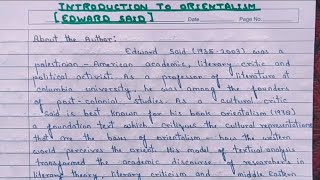 INTRODUCTION TO ORIENTALISM
[EDWARD SAID]
Date
Page No
About the Author:
Edward Said (1935-2003) was a
palestinian - American academic, literary critic and
political activist. As a professor of literature at
columbia university, he was among the founders
of post-colonial studies. As a cultural critic
said is best known for his book orientalism (1978)
a foundation text which critiques the cultural representations
that are the bases of orientalism - how the western
world perceives the orient. His model of textual analysis
transformed the academic discourse of researchers in
literary theory, literary criticism and middle Eastern